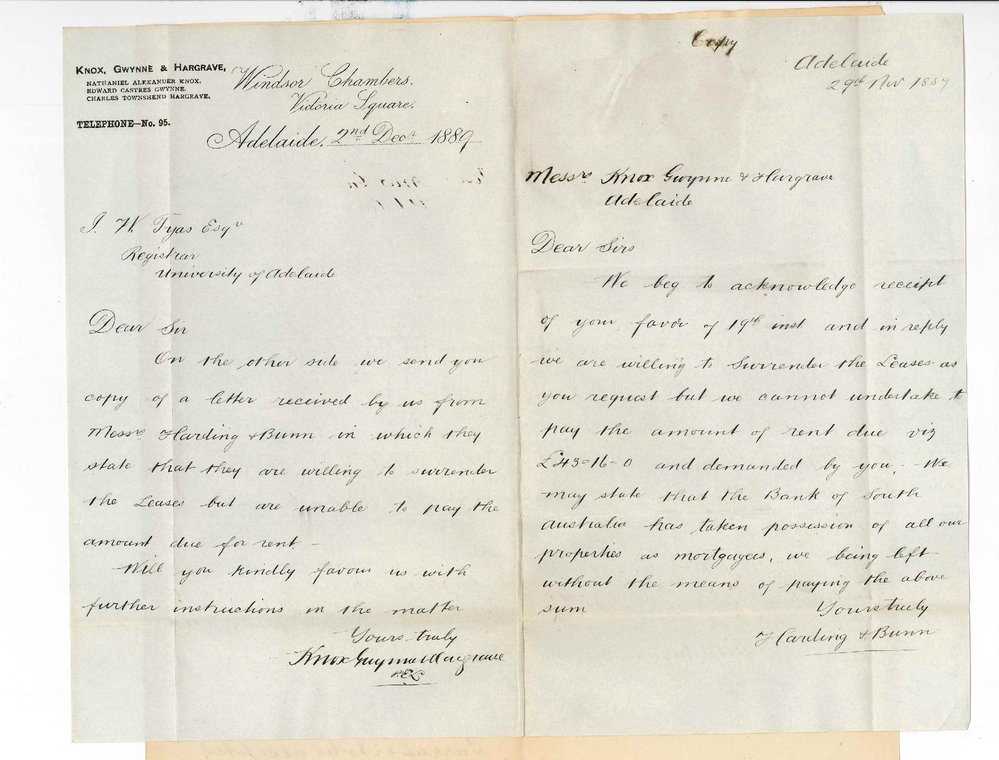 KNOX, GWYNNE & HARGRAVE,
NATHANIEL ALEXANDER KNOX.
EDWARD CASTRES GWYNNE.
CHARLES TOWNSHEND HARGRAVE.
TELEPHONE—No. 95.
Windsor Chambers.
Victoria Square.
Adelaide, 2nd Decr 1889
J. W. Tyas Esqr
Registrar
University of Adelaide
Dear Sir
On the other side we send you
copy of a letter received by us from
Messrs Harding & Bunn in which they
state that they are willing to surrender
the Leases but are unable to pay the
amount due for rent –
Will you kindly favour us with
further instructions in the matter
Yours truly
Knox Gwynne & Hargrave
Copy
Adelaide
29th Nov 1889
Messrs Knox Gwynne & Hargrave
Adelaide
Dear Sirs
We beg to acknowledge receipt
of your favor of 19th inst and in reply
we are willing to Surrender the Leases as
you request but we cannot undertake to
pay the amount of rent due viz
£43=16-0 and demanded by you. We
may state that the Bank of South
Australia has taken possession of all our
properties as mortgagees, we being left
without the means of paying the above
sum
Yours truly
Harding & Bunn